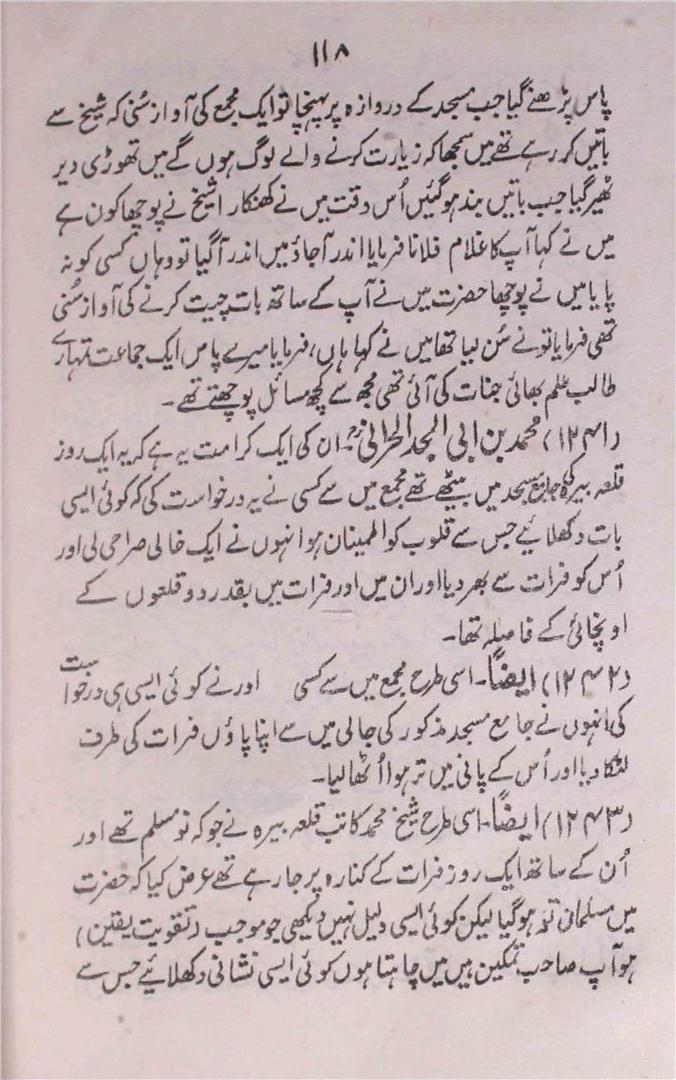 ۱۱۸
پاس پڑھنے گیا جب مسجد کے دروازہ پر پہنچا تو ایک مجمع کی آواز سُنی کہ شیخ سے
باتیں کر رہے تھے میں سمجھا کہ زیارت کرنے والے لوگ ہوں گے میں تھوڑی دیر
ٹھیر گیا جب باتیں بند ہو گئیں اُس وقت میں نے کھنکارا شیخ نے پوچھا کون ہے
میں نے کہا آپ کا غلام فلانا فرمایا اندر آجاؤ میں اندر آگیا تو وہاں کسی کو نہ
پایا میں نے پوچھا حضرت میں نے آپ کے ساتھ بات چیت کرنے کی آواز سُنی
تھی فرمایا تو نے سُن لیا تھا میں نے کہا ہاں، فرمایا میرے پاس ایک جماعت تمہارے
طالب علم بھائی جنات کی آئی تھی مجھ سے کچھ مسائل پوچھتے تھے۔
(۱۲۴۱) محمد بن ابی المجد الحرانیؒ ان کی ایک کرامت یہ ہے کہ یہ ایک روز
قلعہ بیرہ کی جامع مسجد میں بیٹھے تھے مجمع میں سے کسی نے یہ درخواست کی کہ کوئی ایسی
بات دکھلائیے جس سے قلوب کو اطمینان ہو انہوں نے ایک خالی صراحی لی اور
اُس کو فرات سے بھر دیا اور ان میں اور فرات میں بقدر دو قلعوں کے
اونچائی کے فاصلہ تھا۔
(۱۲۴۲) ایضًا۔ اسی طرح مجمع میں سے کسی اور نے کوئی ایسی ہی درخواست
کی انہوں نے جامع مسجد مذکور کی جالی میں سے اپنا پاؤں فرات کی طرف
لٹکا دیا اور اُس کے پانی میں تر ہوا اُٹھا لیا۔
(۱۲۴۳) ایضًا۔ اسی طرح شیخ محمد کاتب قلعہ بیرہ نے جو کہ نو مسلم تھے اور
اُن کے ساتھ ایک روز فرات کے کنارہ پر جا رہے تھے عرض کیا کہ حضرت
میں مسلمان تو ہو گیا لیکن کوئی ایسی دلیل نہیں دیکھی جو موجب (تقویت یقین)
ہو آپ صاحب تمکین ہیں میں چاہتا ہوں کوئی ایسی نشانی دکھلائیے جس سے